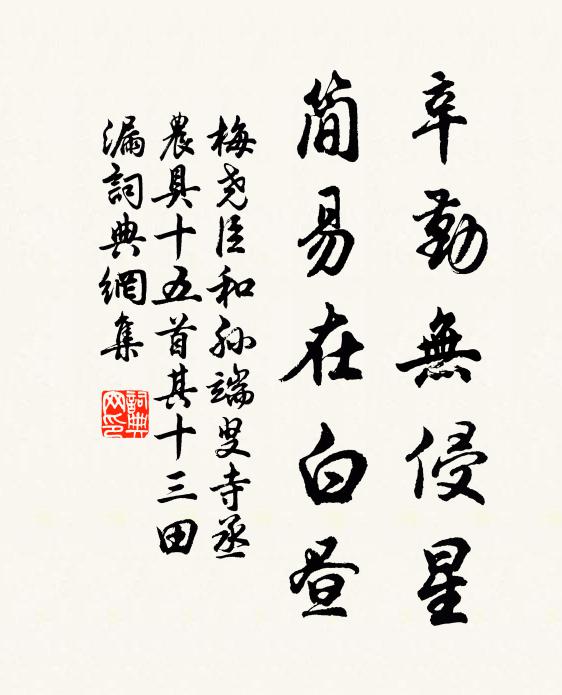 辛勤無侵星
簡易在白晝
梅堯臣和孙端叟寺丞
農具十五首其十三田
漏詞典網集
詞典网印